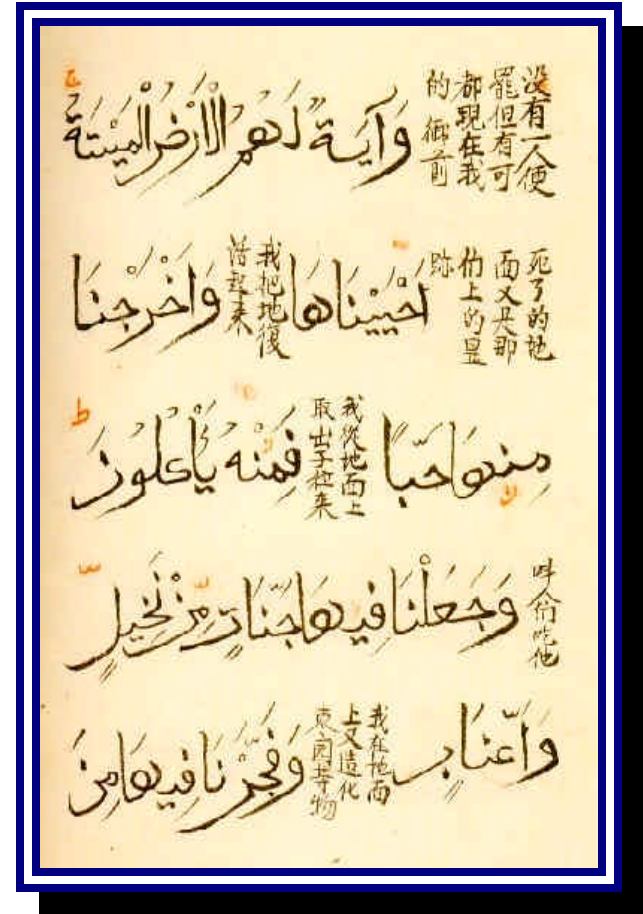 没有一人便
罷但有可
都現在我
的御前
وَآيَةٌ لَهُمُ الْأَرْضُ الْمَيْتَةُ
死了的地
面又是那
们上的显
跡
أَحْيَيْنَاهَا
我把地復
活起来
وَأَخْرَجْنَا
مِنْهَا حَبًّا
我從地面上
取出子粒来
فَمِنْهُ يَأْكُلُونَ
叫人們吃他
وَجَعَلْنَا فِيهَا جَنَّاتٍ مِّنْ نَّخِيلٍ
وَأَعْنَابٍ
我在地面
上又造化
园等物
وَفَجَّرْنَا فِيهَا مِنَ